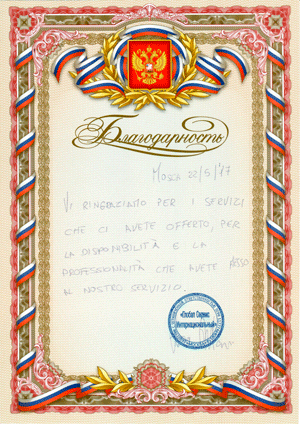 Благодарность
Mosca 22/5/'17
Vi ringraziamo per i servizi
che ci avete offerto, per
la disponibilità e la
professionalità che avete messo
al nostro servizio.
«Глобал Сервис
Интернациональный»